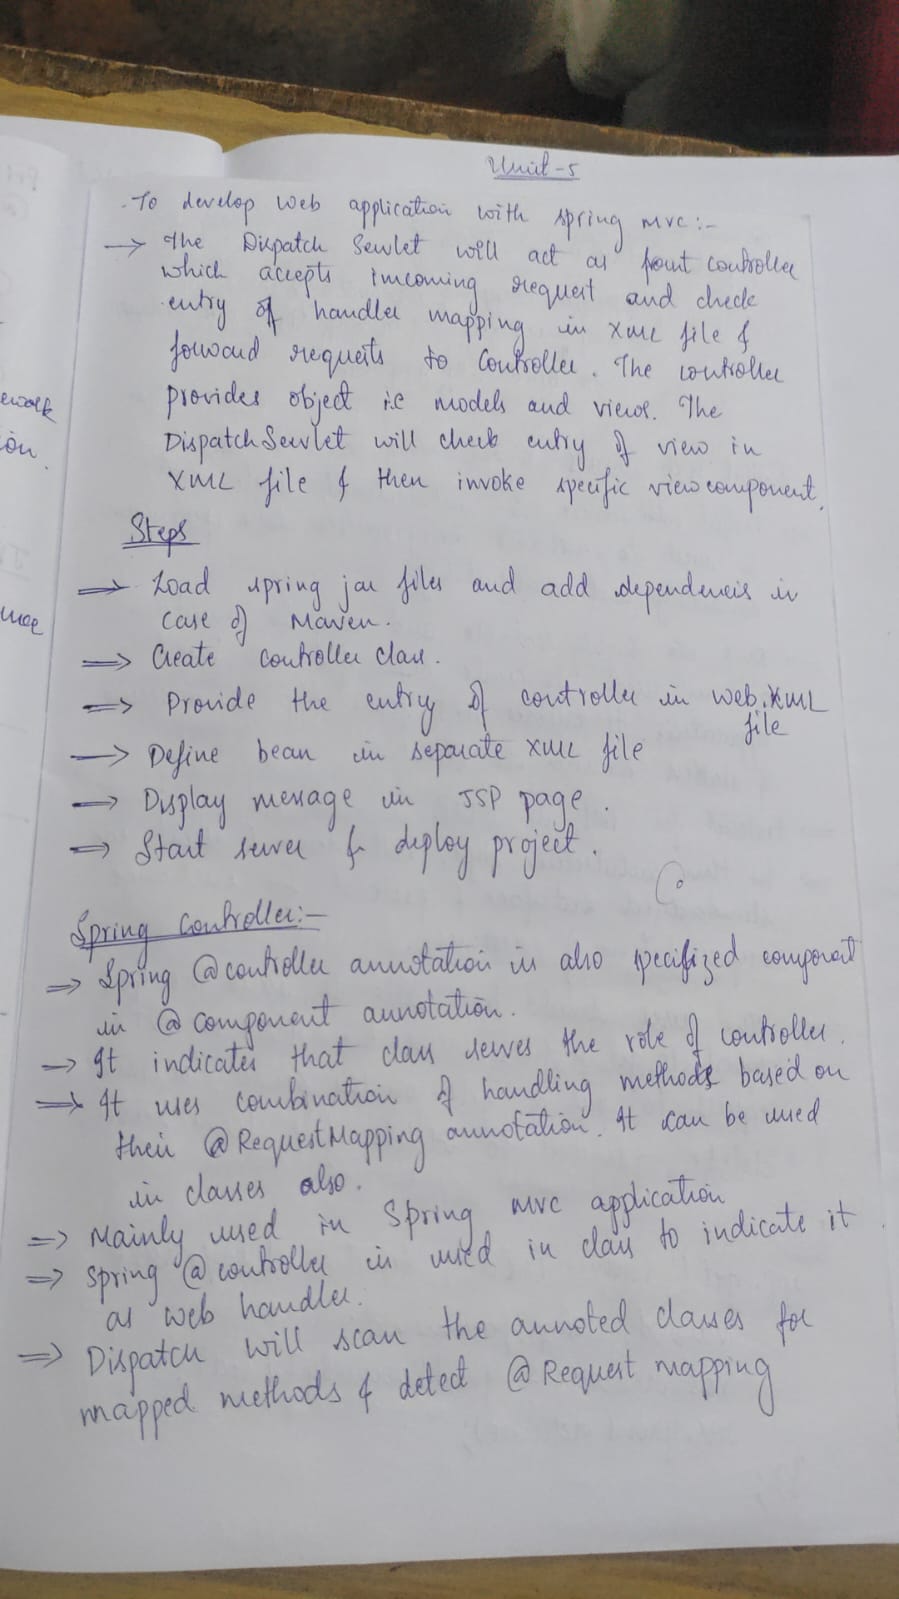 Unit-5
To develop web application with spring mvc:-
→ The Dispatch Servlet will act as front controller
which accepts incoming request and check
entry of handler mapping in XML file &
forward requests to Controller. The controller
provides object i.e models and views. The
DispatchServlet will check entry of view in
XML file & then invoke specific view component.
Steps
⇒ Load spring jar files and add dependencis in
case of Maven.
⇒ Create controller class.
⇒ Provide the entry of controller in web.XML
file
→ Define bean in separate XML file
⇒ Display message in JSP page.
⇒ Start server & deploy project.
Spring Controller:-
⇒ Spring @controller annotation is also specifized component
in @component annotation.
→ It indicates that class serves the role of controller.
⇒ It uses combination of handling methods based on
their @RequestMapping annotation. It can be used
in classes also.
⇒ Mainly used in Spring mvc application
⇒ Spring @controller is used in class to indicate it
as web handler.
⇒ Dispatch will scan the annoted classes for
mapped methods & detect @Request mapping
ework
ion.